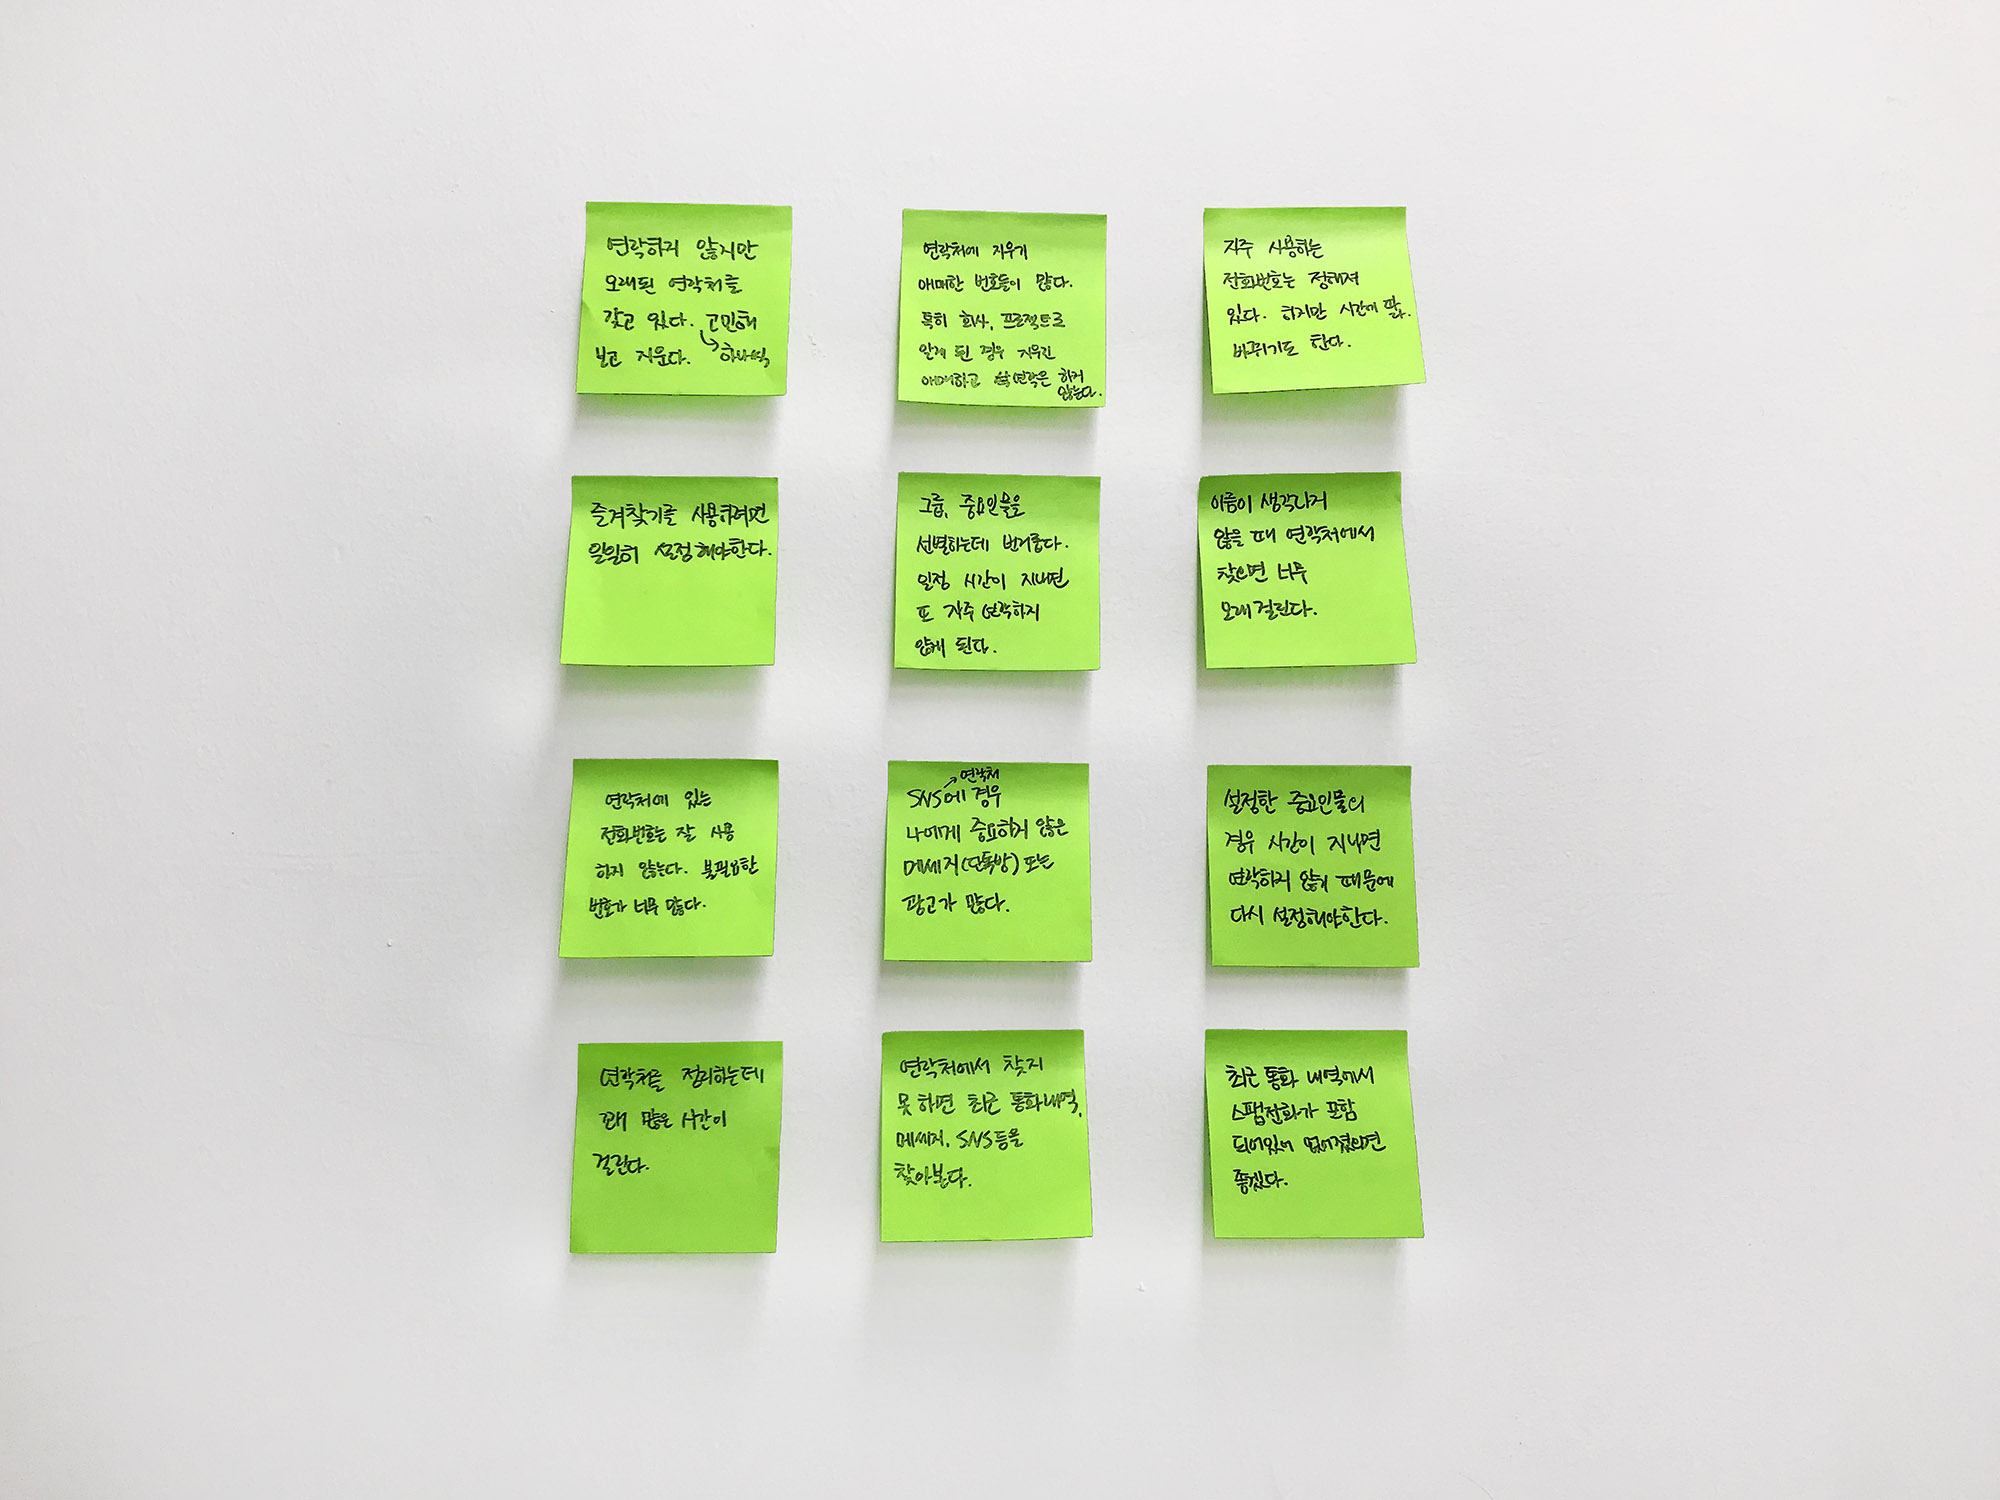 연락하지 않지만
오래된 연락처를
갖고 있다. 고민해
보고 지운다. 하나씩
연락처에 지우기
애매한 번호들이 많다.
특히 회사, 프로젝트로
알게 된 경우 지우긴
애매하고 연락은 하지
않는다.
자주 사용하는
전화번호는 정해져
있다. 하지만 시간에 따라
바뀌기도 한다.
즐겨찾기를 사용하려면
일일히 설정해야한다.
그룹, 중요인물을
선별하는데 번거롭다.
일정 시간이 지나면
또 자주 연락하지
않게 된다.
이름이 생각나지
않을 때 연락처에서
찾으면 너무
오래걸린다.
연락처에 있는
전화번호는 잘 사용
하지 않는다. 불필요한
번호가 너무 많다.
연락처
SNS에 경우
나에게 중요하지 않은
메세지(단톡방) 또는
광고가 많다.
설정한 중요인물의
경우 시간이 지나면
연락하지 않기 때문에
다시 설정해야한다.
연락처를 정리하는데
꽤 많은 시간이
걸린다.
연락처에서 찾지
못하면 최근 통화내역,
메세지, SNS등을
찾아본다.
최근 통화 내역에서
스팸전화가 포함
되어있어 없어졌으면
좋겠다.